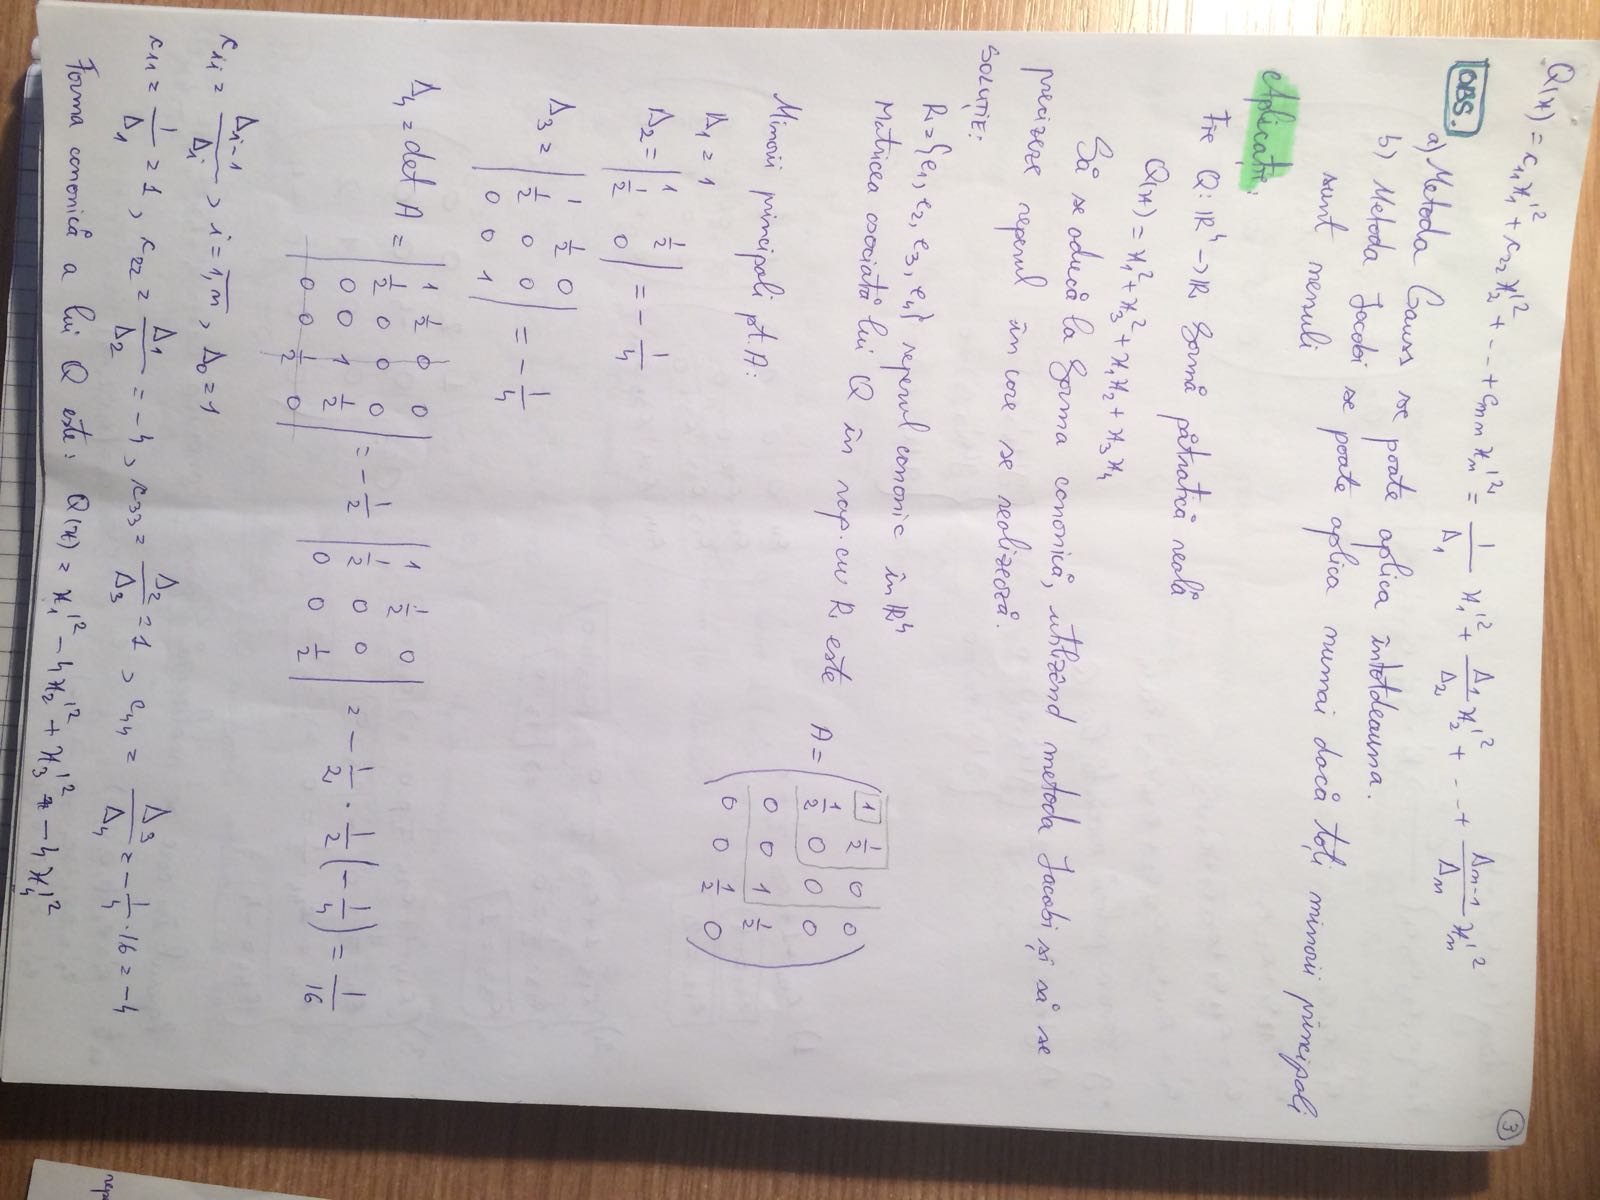 3
Q(x) = c₁₁x₁'² + c₂₂x₂'² + --- + cₙₙxₙ'² = 1/Δ₁ x₁'² + Δ₁/Δ₂ x₂'² + --- + Δₙ₋₁/Δₙ xₙ'²
OBS.
a) Metoda Gauss se poate aplica întotdeauna.
b) Metoda Jacobi se poate aplica numai dacă toți minorii principali
sunt nenuli
Aplicație:
Fie Q: ℝ⁴ → ℝ formă pătratică reală
Q(x) = x₁² + x₃² + x₁x₂ + x₃x₄
Să se aducă la forma canonică, utilizând metoda Jacobi și să se
precizeze reperul în care se realizează.
SOLUȚIE:
R = {e₁, e₂, e₃, e₄} reperul canonic în ℝ⁴
Matricea asociată lui Q în rap. cu R este A = ( 1 1/2 0 0
1/2 0 0 0
0 0 1 1/2
0 0 1/2 0 )
Minorii principali pt. A:
Δ₁ = 1
Δ₂ = | 1 1/2
1/2 0 | = - 1/4
Δ₃ = | 1 1/2 0
1/2 0 0
0 0 1 | = - 1/4
Δ₄ = det A = | 1 1/2 0 0
1/2 0 0 0
0 0 1 1/2
0 0 1/2 0 | = - 1/2 | 1 1/2 0
1/2 0 0
0 0 1/2 | = - 1/2 · 1/2 (- 1/4) = 1/16
cᵢᵢ = Δᵢ₋₁/Δᵢ , i = 1,n , Δ₀ = 1
c₁₁ = 1/Δ₁ = 1 , c₂₂ = Δ₁/Δ₂ = -4 , c₃₃ = Δ₂/Δ₃ = 1 , c₄₄ = Δ₃/Δ₄ = - 1/4 · 16 = -4
Forma canonică a lui Q este: Q(x) = x₁'² - 4x₂'² + x₃'² - 4x₄'²